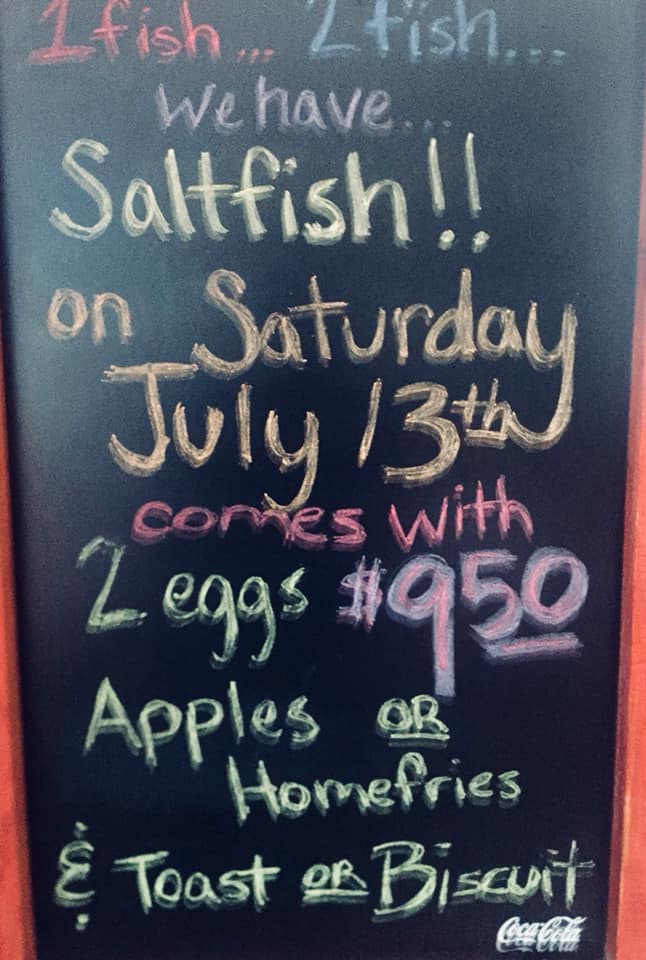 1 fish... 2 fish...
We have...
Saltfish!!
on Saturday
July 13th
comes with
2 eggs $9.50
Apples OR
Homefries
& Toast OR Biscuit
Coca-Cola